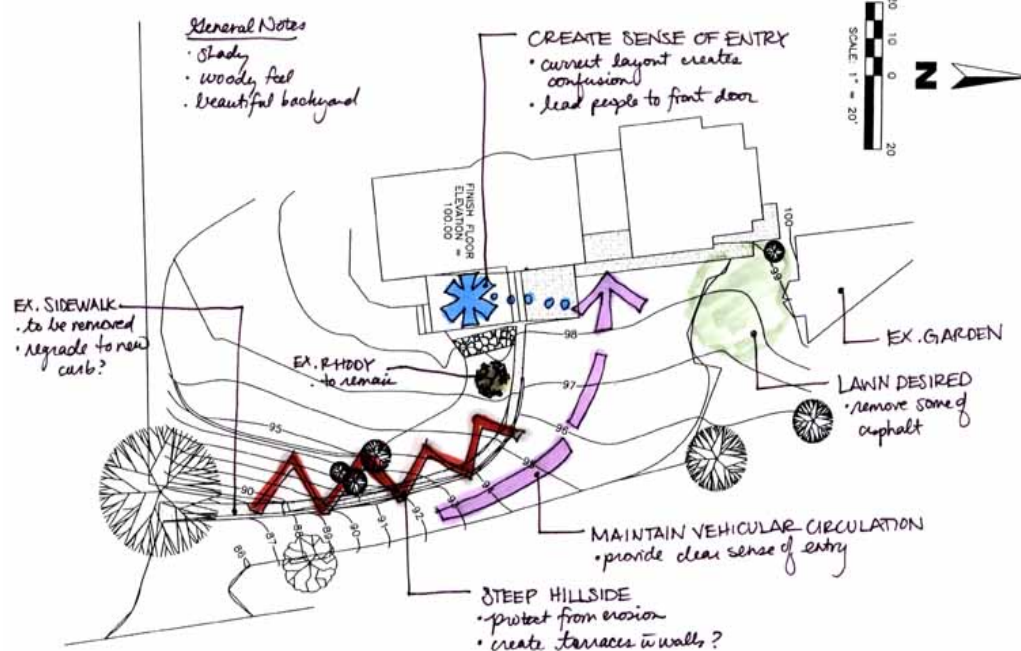 General Notes
· shady
· woody feel
· beautiful backyard
CREATE SENSE OF ENTRY
• current layout creates
confusion
• lead people to front door
20
10
0
20
SCALE: 1" = 20'
N
FINISH FLOOR
ELEVATION =
100.00
100
99
98
97
96
95
95
94
92
91
90
90
89
88
87
86
EX. SIDEWALK
• to be removed
• regrade to new
curb?
EX. RHODY
• to remain
EX. GARDEN
LAWN DESIRED
• remove some of
asphalt
MAINTAIN VEHICULAR CIRCULATION
• provide clear sense of entry
STEEP HILLSIDE
• protect from erosion
• create terraces w̄ walls?